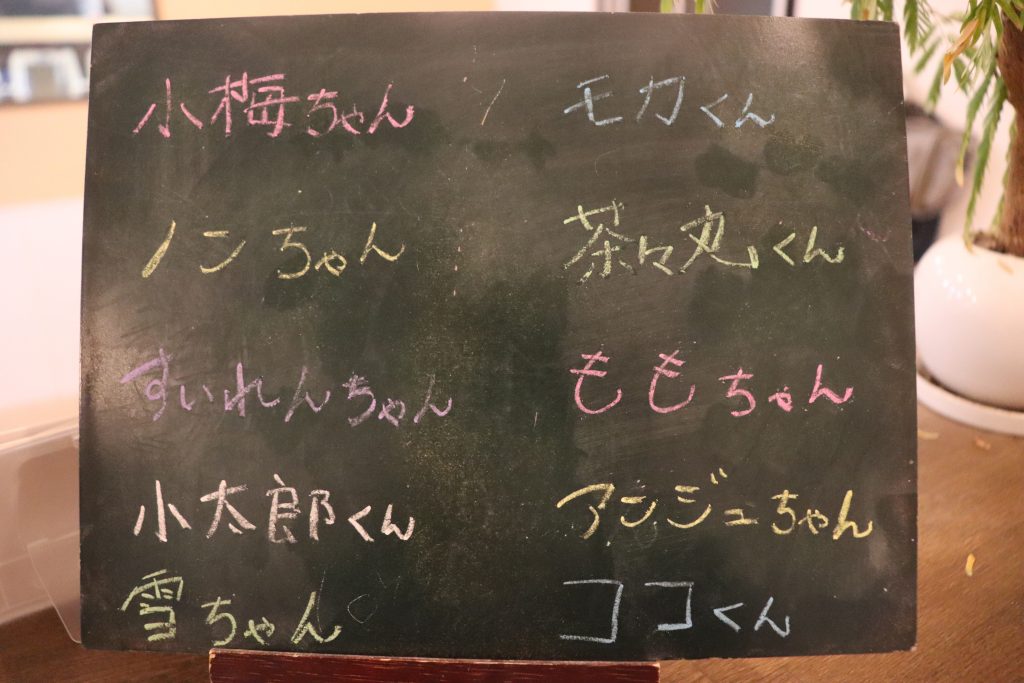 小梅ちゃん
モカくん
ノンちゃん
茶々丸くん
すいれんちゃん
ももちゃん
小太郎くん
アンジュちゃん
雪ちゃん
ココくん